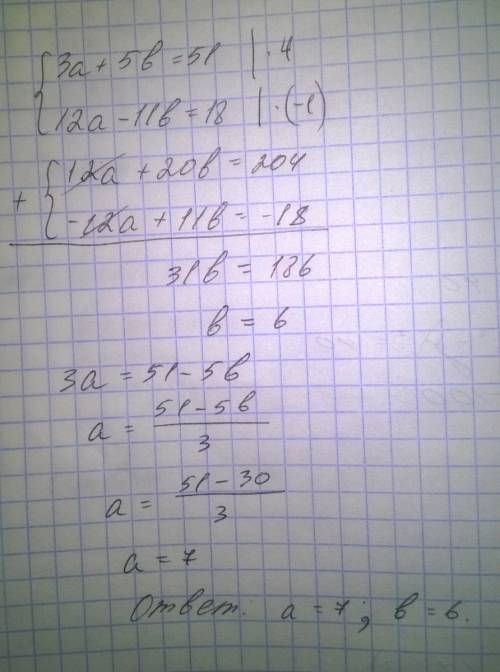 3a + 5b = 51 | · 4
12a - 11b = 18 | · (-1)
+ 12a + 20b = 204
-12a + 11b = -18
31b = 186
b = 6
3a = 51 - 5b
a = (51 - 5b) / 3
a = (51 - 30) / 3
a = 7
Ответ. a = 7; b = 6.